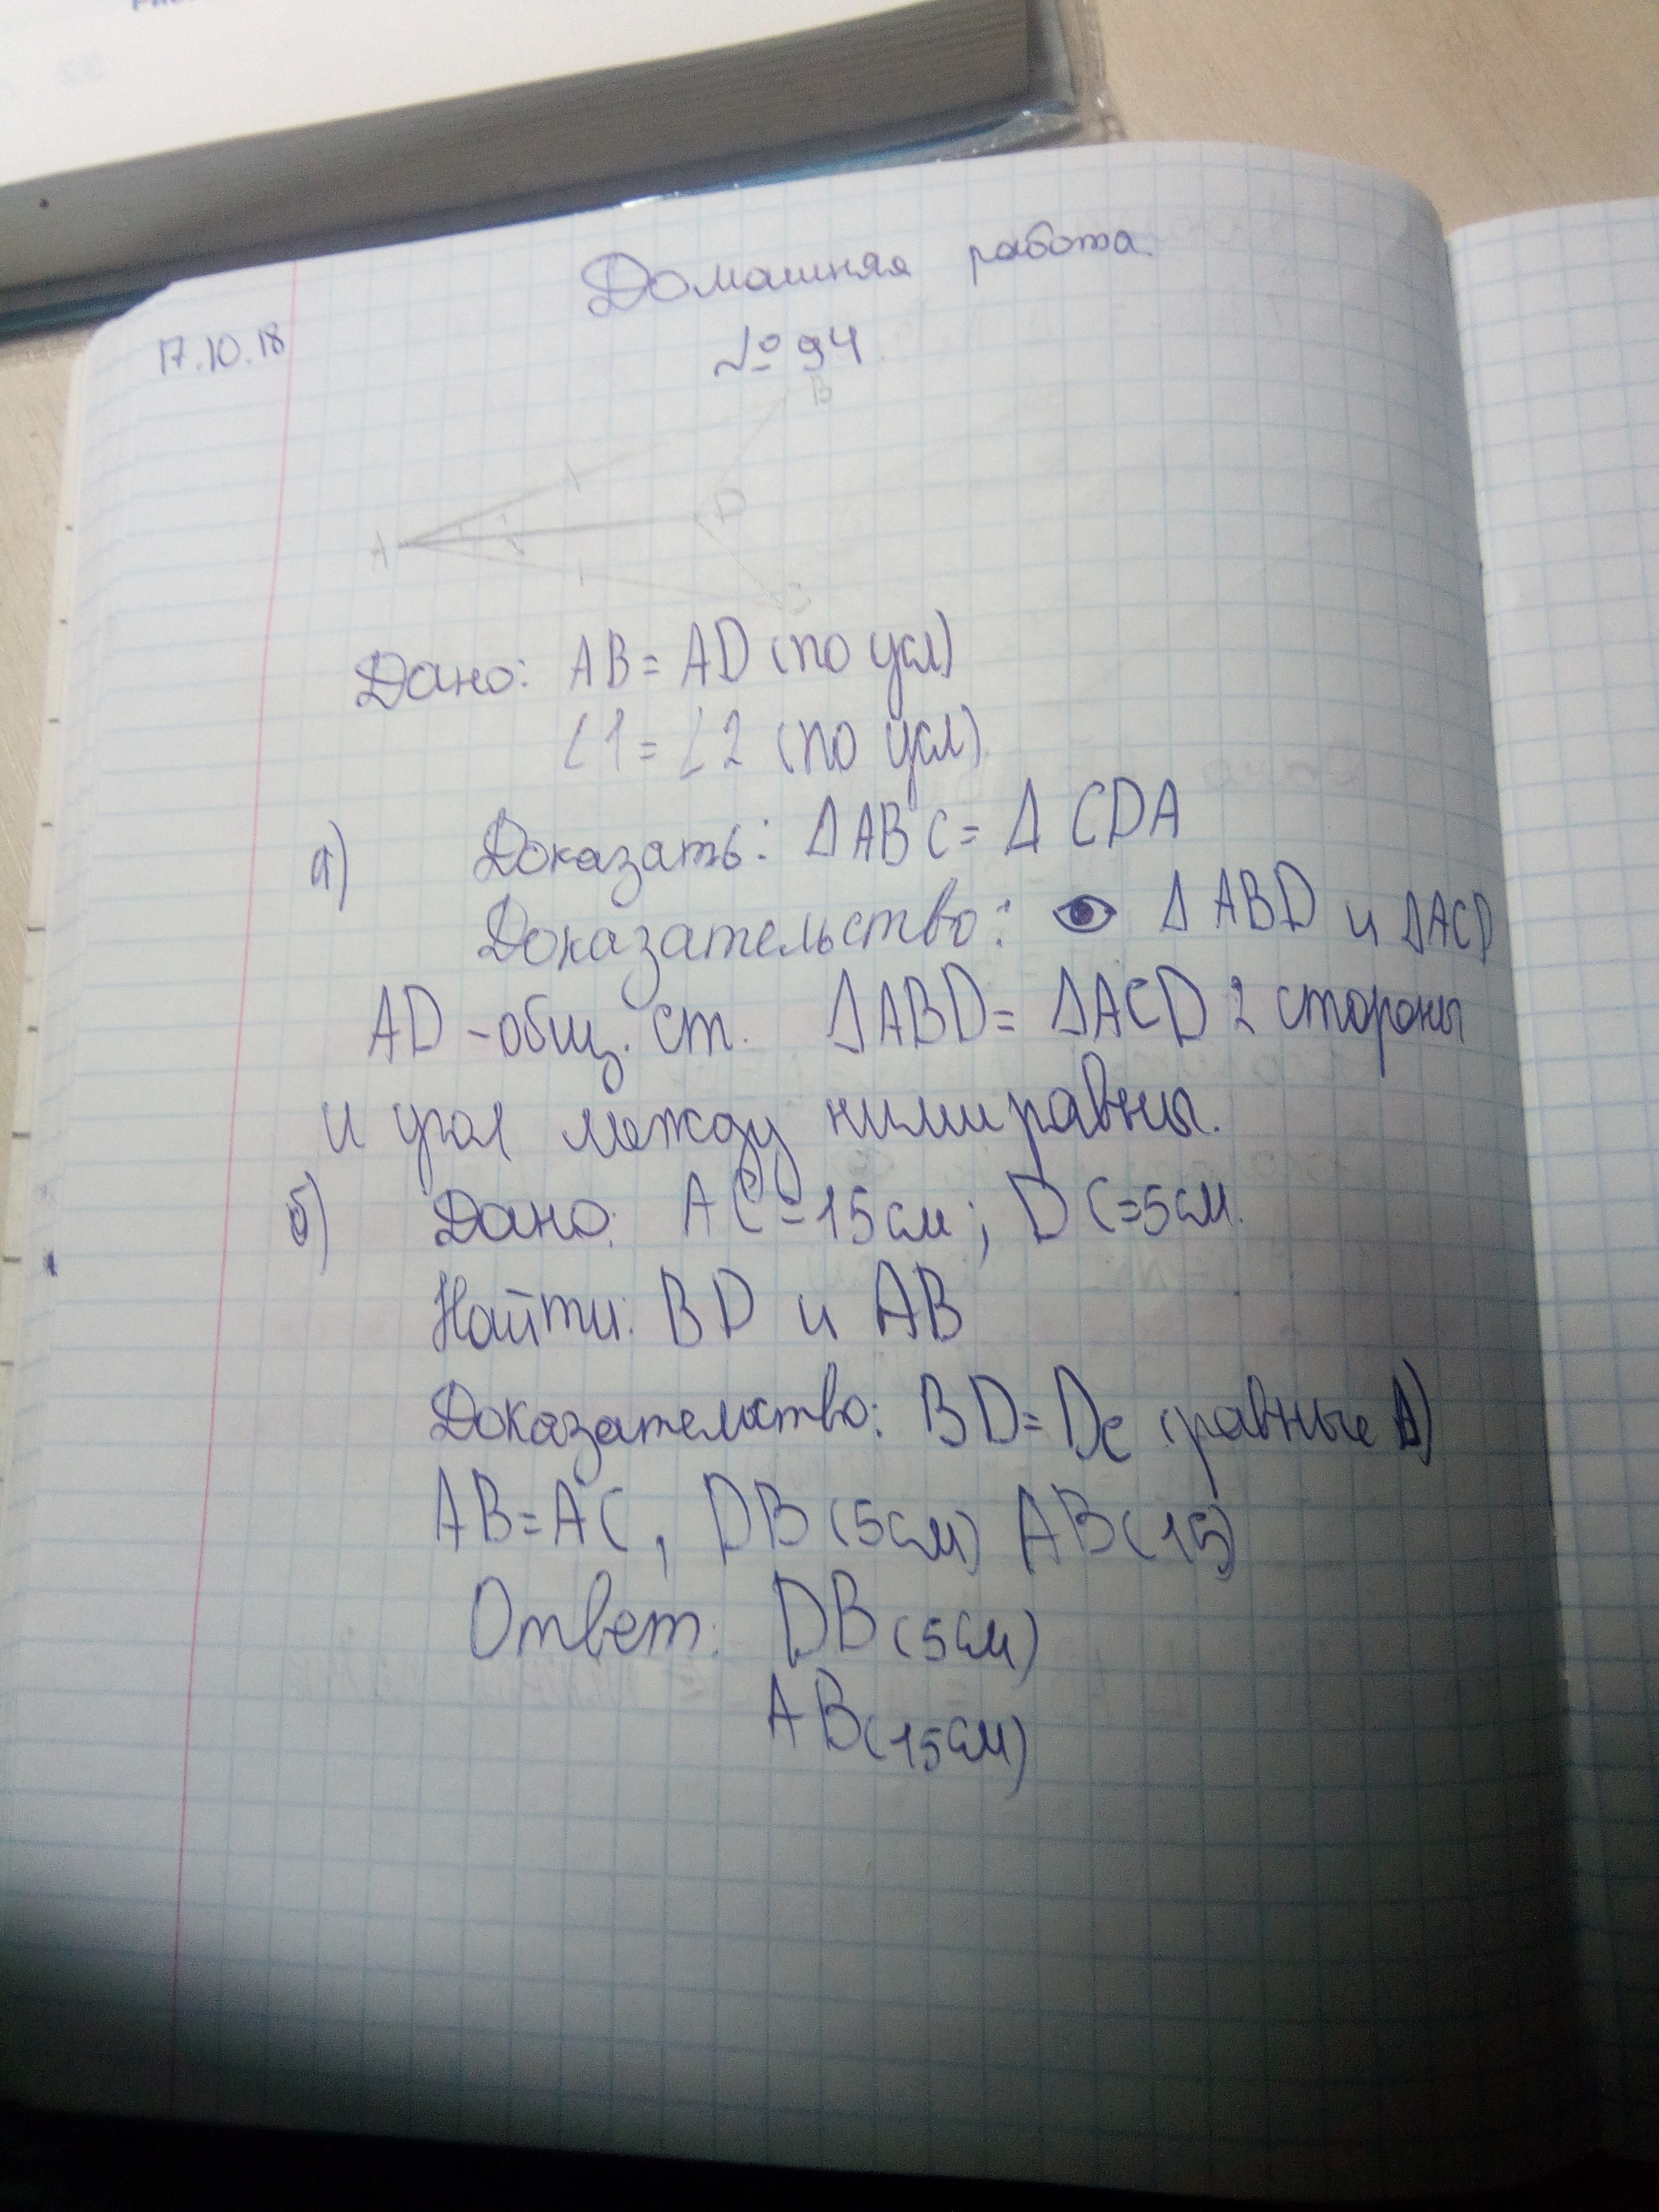 Домашняя работа.
17.10.18
№ 94
B
D
A
Дано: AB = AD (по усл)
∠1 = ∠2 (по усл)
а) Доказать: Δ ABC = Δ CDA
Доказательство: Δ ABD и ΔACD
AD - общ. ст. ΔABD = ΔACD 2 стороны
и угол между ними равны.
б) Дано: AC = 15 см; DC = 5 см.
Найти: BD и AB
Доказательство: BD = Dc (равные Δ)
AB = AC, DB (5 см) AB (15)
Ответ: DB (5 см)
AB (15 см)